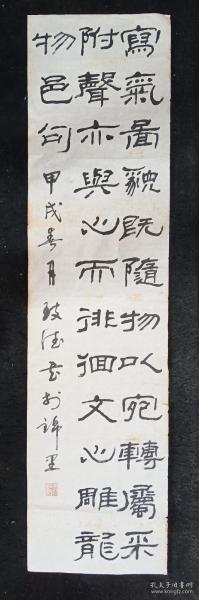 寫氣圖貌既隨物以宛轉屬采
附聲亦與心而徘徊文心雕龍
物色句 甲戌春月致德書於錦里
孔夫子旧书网
www.kongfz.com